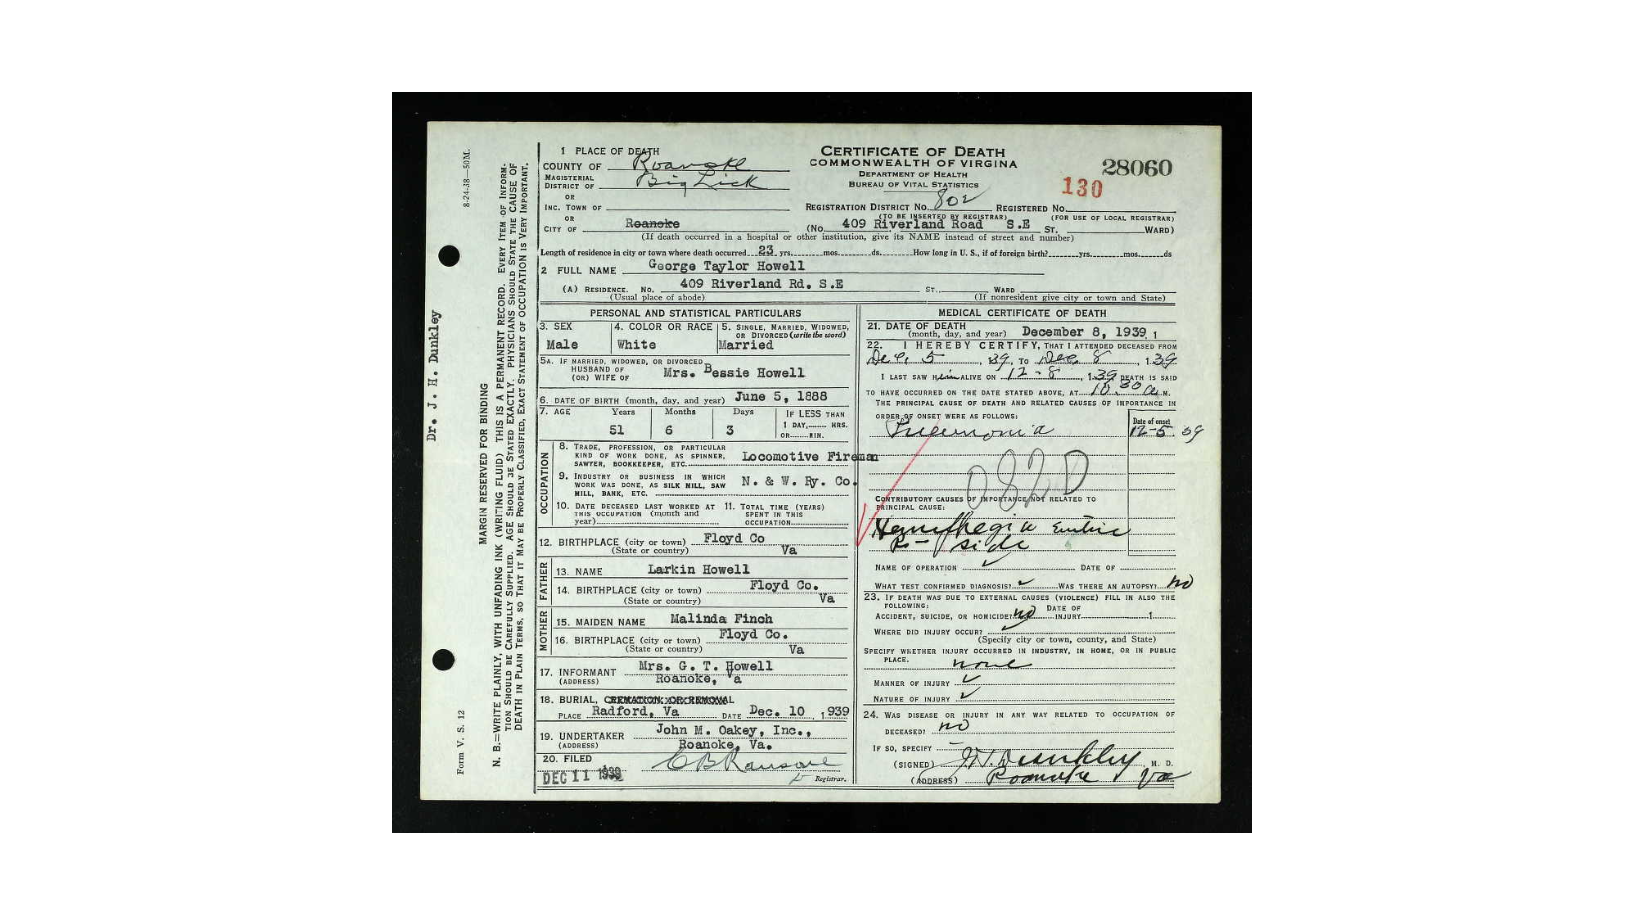 8-24-38—50M.
MARGIN RESERVED FOR BINDING
N. B.—WRITE PLAINLY, WITH UNFADING INK (WRITING FLUID) THIS IS A PERMANENT RECORD. EVERY ITEM OF INFORM-
TION SHOULD BE CAREFULLY SUPPLIED. AGE SHOULD BE STATED EXACTLY. PHYSICIANS SHOULD STATE THE CAUSE OF
DEATH IN PLAIN TERMS, SO THAT IT MAY BE PROPERLY CLASSIFIED. EXACT STATEMENT OF OCCUPATION IS VERY IMPORTANT.
Form V. S. 12
Dr. J. H. Dunkley
CERTIFICATE OF DEATH
COMMONWEALTH OF VIRGINIA
DEPARTMENT OF HEALTH
BUREAU OF VITAL STATISTICS
28060
130
1 PLACE OF DEATH
COUNTY OF Roanoke
MAGISTERIAL DISTRICT OF Big Lick
OR
INC. TOWN OF
OR
CITY OF Roanoke
REGISTRATION DISTRICT NO. 802 REGISTERED NO.
(TO BE INSERTED BY REGISTRAR) (FOR USE OF LOCAL REGISTRAR)
(No. 409 Riverland Road S.E ST. WARD)
(If death occurred in a hospital or other institution, give its NAME instead of street and number)
Length of residence in city or town where death occurred 23 yrs. mos. ds. How long in U. S., if of foreign birth? yrs. mos. ds
2 FULL NAME George Taylor Howell
(A) RESIDENCE. No. 409 Riverland Rd. S.E ST. WARD
(Usual place of abode) (If nonresident give city or town and State)
PERSONAL AND STATISTICAL PARTICULARS
3. SEX Male
4. COLOR OR RACE White
5. SINGLE, MARRIED, WIDOWED, OR DIVORCED (write the word) Married
5A. IF MARRIED, WIDOWED, OR DIVORCED
HUSBAND OF
(OR) WIFE OF Mrs. Bessie Howell
6. DATE OF BIRTH (month, day, and year) June 5, 1888
7. AGE Years Months Days IF LESS THAN
51 6 3 1 DAY, HRS.
OR MIN.
OCCUPATION
8. TRADE, PROFESSION, OR PARTICULAR
KIND OF WORK DONE, AS SPINNER,
SAWYER, BOOKKEEPER, ETC. Locomotive Fireman
9. INDUSTRY OR BUSINESS IN WHICH
WORK WAS DONE, AS SILK MILL, SAW
MILL, BANK, ETC. N. & W. Ry. Co.
10. DATE DECEASED LAST WORKED AT THIS OCCUPATION (month and year)
11. TOTAL TIME (YEARS) SPENT IN THIS OCCUPATION
12. BIRTHPLACE (city or town) Floyd Co
(State or country) Va
FATHER
13. NAME Larkin Howell
14. BIRTHPLACE (city or town) Floyd Co.
(State or country) Va
MOTHER
15. MAIDEN NAME Malinda Finch
16. BIRTHPLACE (city or town) Floyd Co.
(State or country) Va
17. INFORMANT Mrs. G. T. Howell
(ADDRESS) Roanoke, Va
18. BURIAL, CREMATION OR REMOVAL
PLACE Radford, Va DATE Dec. 10, 1939
19. UNDERTAKER John M. Oakey, Inc.,
(ADDRESS) Roanoke, Va.
20. FILED
DEC 11 1939 C B Ransone
Registrar.
MEDICAL CERTIFICATE OF DEATH
21. DATE OF DEATH
(month, day, and year) December 8, 1939, 1
22. I HEREBY CERTIFY, THAT I ATTENDED DECEASED FROM
Dec. 5, 39, TO Dec 8, 139
I LAST SAW Him ALIVE ON 12-8, 139 DEATH IS SAID
TO HAVE OCCURRED ON THE DATE STATED ABOVE, AT 10.30 a M.
THE PRINCIPAL CAUSE OF DEATH AND RELATED CAUSES OF IMPORTANCE IN
ORDER OF ONSET WERE AS FOLLOWS:
Date of onset
Pneumonia 12-5 39
082D
CONTRIBUTORY CAUSES OF IMPORTANCE NOT RELATED TO
PRINCIPAL CAUSE:
Hemiplegia Entire
R- side
NAME OF OPERATION DATE OF
WHAT TEST CONFIRMED DIAGNOSIS? WAS THERE AN AUTOPSY? no
23. IF DEATH WAS DUE TO EXTERNAL CAUSES (VIOLENCE) FILL IN ALSO THE
FOLLOWING:
ACCIDENT, SUICIDE, OR HOMICIDE? no DATE OF INJURY 1
WHERE DID INJURY OCCUR?
(Specify city, town, county, and State)
SPECIFY WHETHER INJURY OCCURRED IN INDUSTRY, IN HOME, OR IN PUBLIC
PLACE. none
MANNER OF INJURY
NATURE OF INJURY
24. WAS DISEASE OR INJURY IN ANY WAY RELATED TO OCCUPATION OF
DECEASED? no
IF SO, SPECIFY
(SIGNED) J. H. Dunkley, M. D.
(ADDRESS) Roanoke, Va